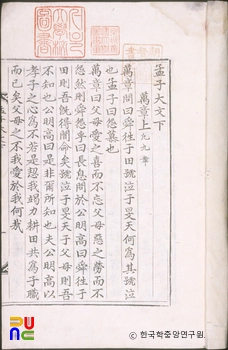 孟子大文下
萬章上 凡九章
萬章問曰舜往于田號泣于旻天何爲其號泣
也孟子曰怨慕也
萬章曰父母愛之喜而不忘父母惡之勞而不
怨然則舜怨乎曰長息問於公明高曰舜往于
田則吾旣得聞命矣號泣于旻天于父母則吾
不知也公明高曰是非爾所知也夫公明高以
孝子之心爲不若是恝我竭力耕田共爲子職
而已矣父母之不我愛於我何哉
ⓒ 한국학중앙연구원